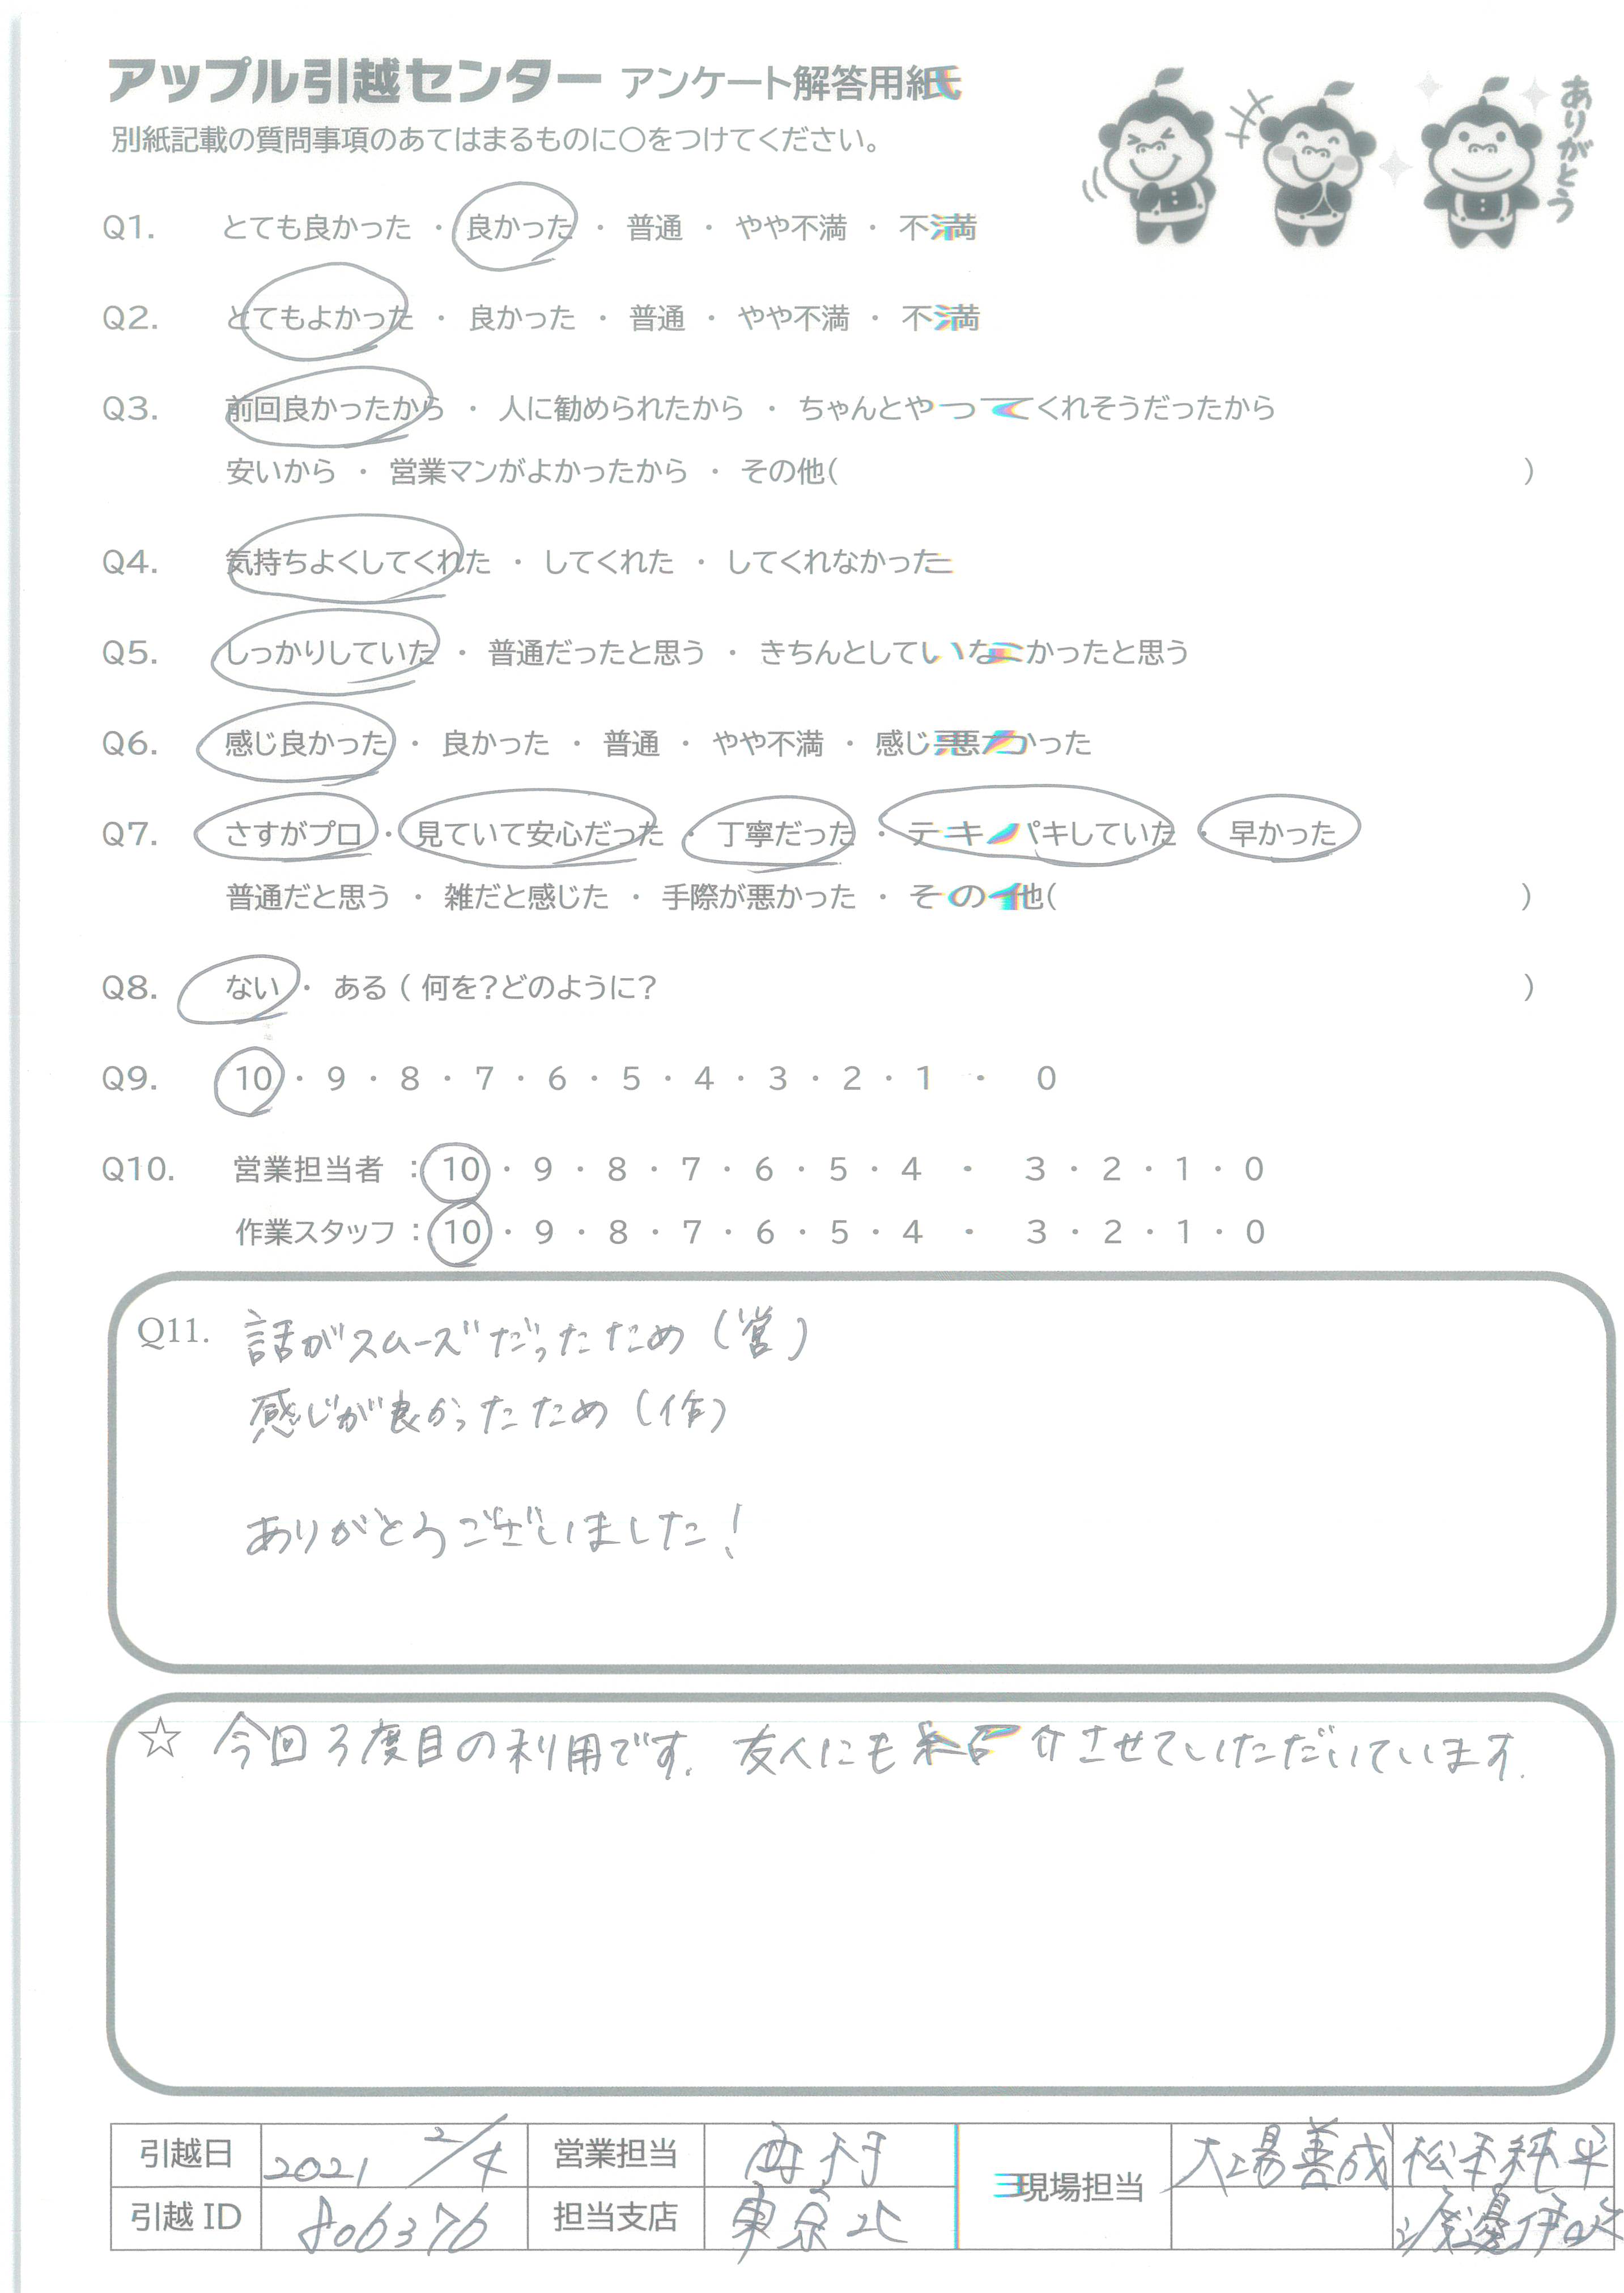 アップル引越センター アンケート解答用紙
別紙記載の質問事項のあてはまるものに○をつけてください。
ありがとう
Q1. とても良かった ・ 良かった ・ 普通 ・ やや不満 ・ 不満
Q2. とてもよかった ・ 良かった ・ 普通 ・ やや不満 ・ 不満
Q3. 前回良かったから ・ 人に勧められたから ・ ちゃんとやってくれそうだったから
安いから ・ 営業マンがよかったから ・ その他( )
Q4. 気持ちよくしてくれた ・ してくれた ・ してくれなかった
Q5. しっかりしていた ・ 普通だったと思う ・ きちんとしていなかったと思う
Q6. 感じ良かった ・ 良かった ・ 普通 ・ やや不満 ・ 感じ悪かった
Q7. さすがプロ ・ 見ていて安心だった ・ 丁寧だった ・ テキパキしていた ・ 早かった
普通だと思う ・ 雑だと感じた ・ 手際が悪かった ・ その他( )
Q8. ない ・ ある ( 何を?どのように? )
Q9. 10 ・ 9 ・ 8 ・ 7 ・ 6 ・ 5 ・ 4 ・ 3 ・ 2 ・ 1 ・ 0
Q10. 営業担当者 : 10 ・ 9 ・ 8 ・ 7 ・ 6 ・ 5 ・ 4 ・ 3 ・ 2 ・ 1 ・ 0
作業スタッフ : 10 ・ 9 ・ 8 ・ 7 ・ 6 ・ 5 ・ 4 ・ 3 ・ 2 ・ 1 ・ 0
Q11. 話がスムーズだったため (営)
感じが良かったため (作)
ありがとうございました!
☆ 今回3度目の利用です. 友人にも紹介させていただいています.
引越日 2021 2/4 営業担当 現場担当 大場善成 松本純平
引越 ID 806376 担当支店 東京北